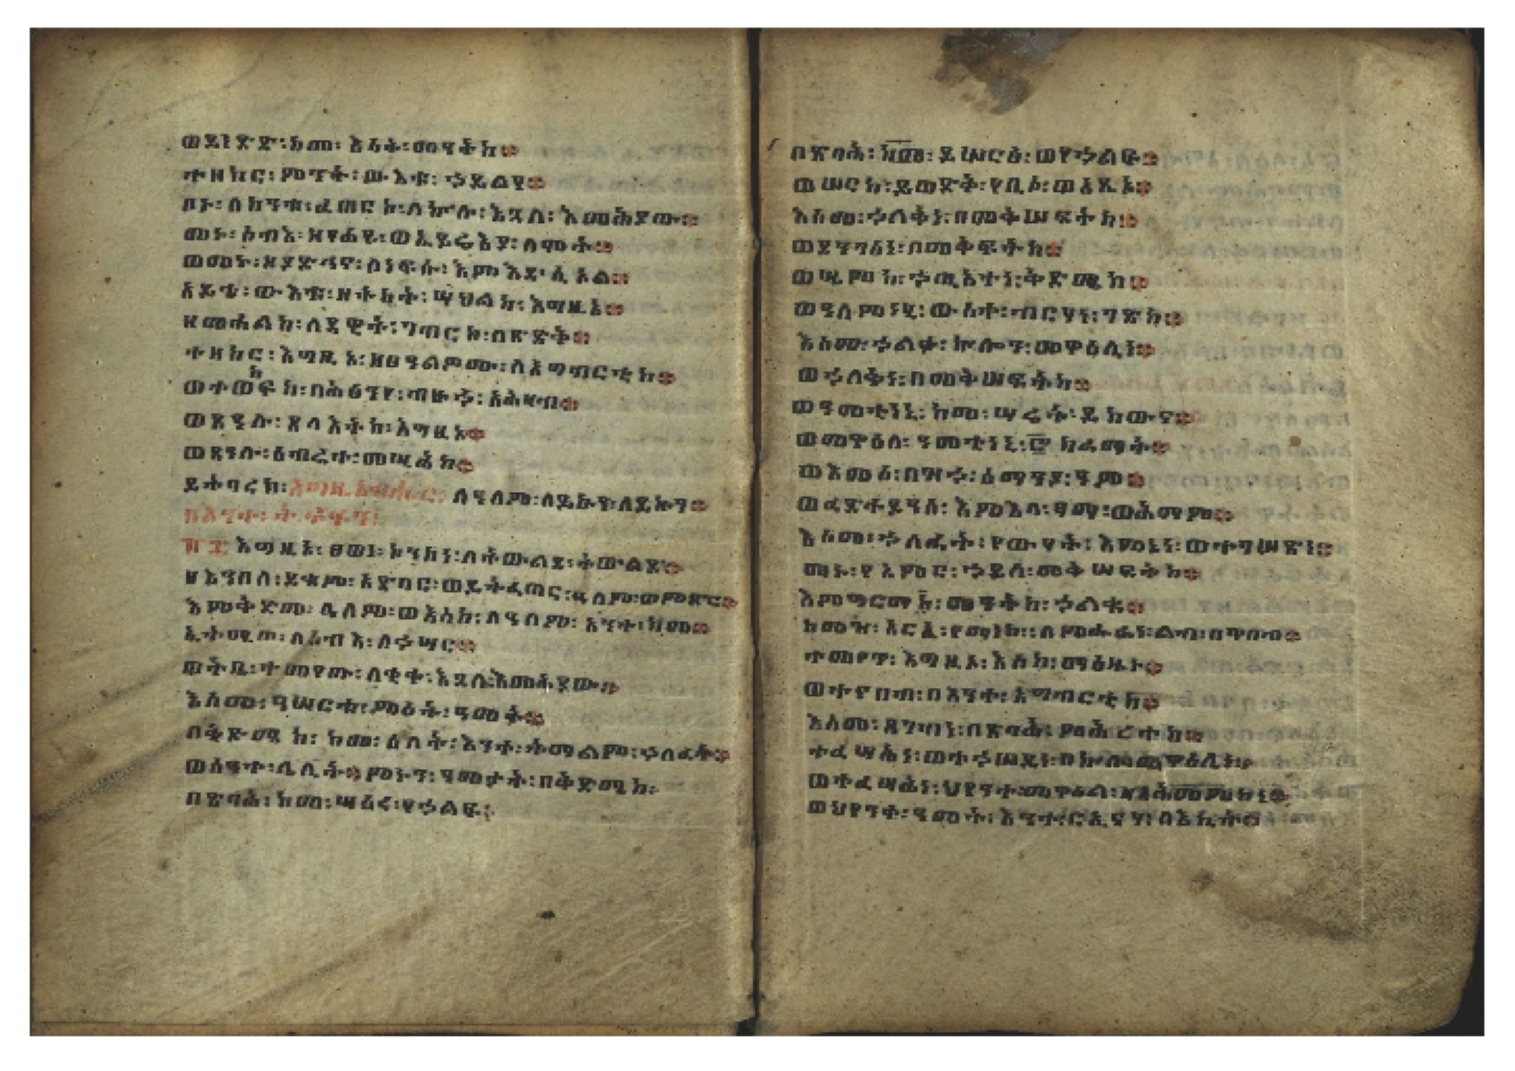 ወይነድድ፡ ከመ፡ እሳት፡ መዓትከ።
ተዘከር፡ ምንት፡ ውእቱ፡ ኃይልየ።
በኑ፡ ለከንቱ፡ ፈጠርኮ፡ ለኵሉ፡ እጓለ፡ እመሕያው።
መኑ፡ ሰብእ፡ ዘየሐዩ፡ ወኢይሬእያ፡ ለሞት።
ወመኑ፡ ዘያድኅና፡ ለነፍሱ፡ እምእደ፡ ሲኦል።
አይቴ፡ ውእቱ፡ ዘትካት፡ ሣህልከ፡ እግዚኦ።
ዘመሐልከ፡ ለዳዊት፡ ገብርከ፡ በጽድቅ።
ተዘከር፡ እግዚኦ፡ ዘፀዓልዎሙ፡ ለአግብርቲከ።
ወተወከፍኩ፡ በሕፅንየ፡ ብዙኃ፡ አሕዛበ።
ወጸዓሉ፡ ጸላእትከ፡ እግዚኦ።
ወጸዓሉ፡ ዕብሬተ፡ መሲሕከ።
ይትባረክ፡ እግዚአብሔር፡ ለዓለም፡ ለይኩን፡ ለይኩን።
በእንተ፡
፹፱ እግዚኦ፡ ፀወነ፡ ኮንከነ፡ ለትውልደ፡ ትውልድ።
ዘእንበለ፡ ይቁም፡ አድባር፡ ወይትፈጠር፡ ዓለም፡ ወምድር።
እምቅድመ፡ ዓለም፡ ወእስከ፡ ለዓለም፡ አንተ፡ ክመ።
ኢተሚጦ፡ ለሰብእ፡ ለኃሣር።
ወትቤ፡ ተመየጡ፡ ደቂቀ፡ እጓለ፡ እመሕያው።
እስመ፡ ዓሠርቱ፡ ምዕት፡ ዓመት።
በቅድሜከ፡ ከመ፡ ዕለት፡ እንተ፡ ትማልም፡ ኃለፈት።
ወሰዓተ፡ ሌሊት። ምኑን፡ ዓመታት፡ በቅድሜከ፡
በጽባሕ፡ ከመ፡ ሣዕር፡ የኃልፍ፡
በጽባሕ፡ ከመ፡ ይሠርፅ፡ ወየኃልፍ።
ወሠርከ፡ ይወድቅ፡ የቢስ፡ ወፅጺኦ።
እስመ፡ ኃለቅነ፡ በመቅሠፍትከ።
ወደንገፅነ፡ በመቅፍትከ።
ወሤምከ፡ ኃጢአተነ፡ ቅድሜከ።
ወዓለምነሂ፡ ውስተ፡ ብርሃነ፡ ገጽከ።
እስመ፡ ኃልቀ፡ ኵሎን፡ መዋዕሊነ።
ወኃለቅነ፡ በመቅሠፍትከ።
ወዓመቲነኒ፡ ከመ፡ ሣሬት፡ ይከውና።
ወመዋዕለ፡ ዓመቲነኒ፡ ፸ ክራማት።
ወእመሰ፡ በዝኃ፡ ሰማንያ፡ ዓም።
ወፈድፋደሰ፡ እምእላ፡ ፃማ፡ ወሕማም።
እስመ፡ ኃለፈት፡ የውሃት፡ እምኔነ፡ ወተገሠጽነ።
መኑ፡ የአምር፡ ኃይለ፡ መቅሠፍትከ።
እምግርማ፡ መዓትከ፡ ኃልቁ።
ከመዝ፡ አርኢ፡ የማነከ፡ ለምሑራነ፡ ልብ፡ በጥበብ።
ተመየጥ፡ እግዚኦ፡ እስከ፡ ማዕዜኑ።
ወተናበብ፡ በእንተ፡ አግብርቲከ።
እስመ፡ ጸገብነ፡ በጽባሕ፡ ምሕረተከ።
ተፈሣሕነ፡ ወተኃሠይነ፡ በኵሉ፡ መዋዕሊነ።
ወተፈሣሕነ፡ ህየንተ፡ መዋዕል፡ ዘአሕመምከነ።
ወህየንተ፡ ዓመት፡ እንተ፡ ርኢናሃ፡ በእኪት።